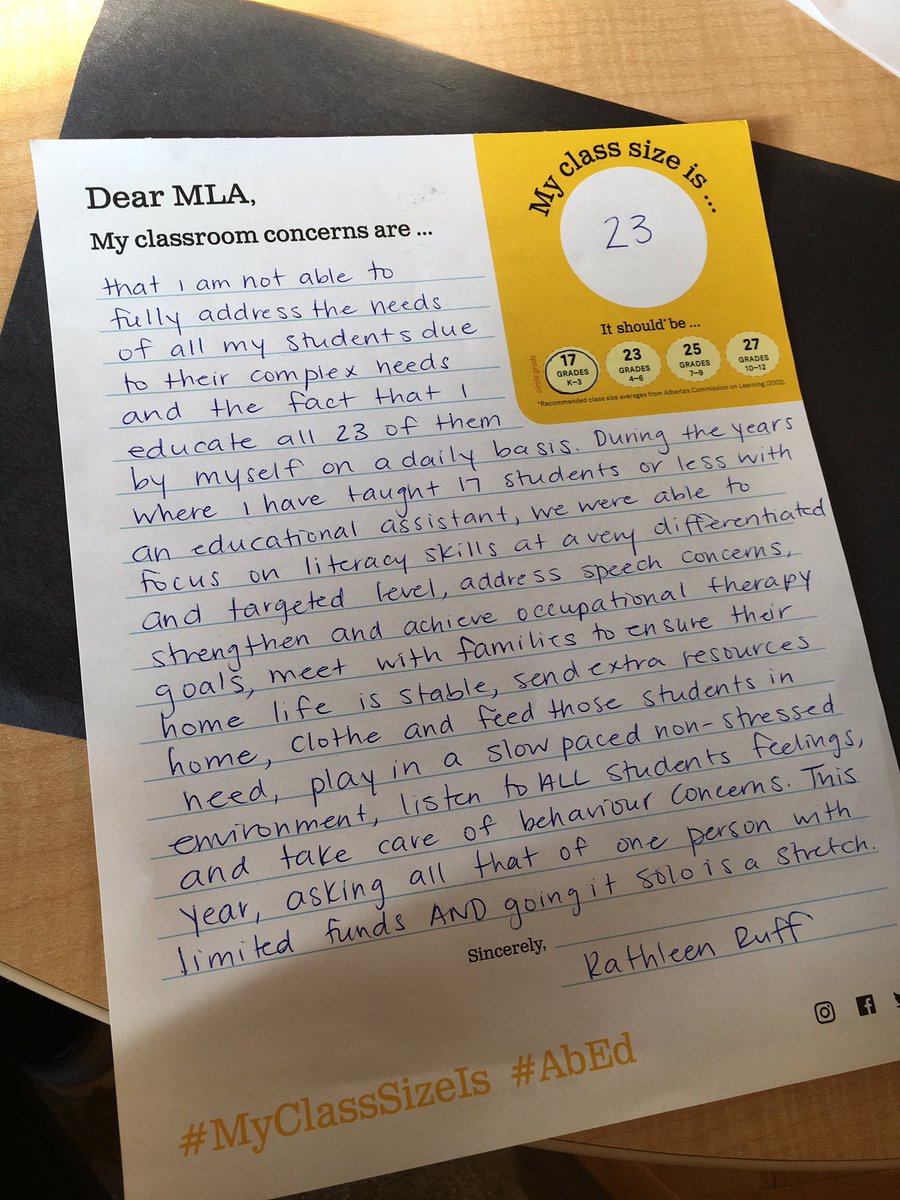 Dear MLA,
My classroom concerns are ...
My class size is ...
23
It should be ...
circle grade
17 GRADES K–3
23 GRADES 4–6
25 GRADES 7–9
27 GRADES 10–12
*Recommended class size averages from Alberta's Commission on Learning (2003).
that I am not able to
fully address the needs
of all my students due
to their complex needs
and the fact that I
educate all 23 of them
by myself on a daily basis. During the years
where I have taught 17 students or less with
an educational assistant, we were able to
focus on literacy skills at a very differentiated
and targeted level, address speech concerns,
strengthen and achieve occupational therapy
goals, meet with families to ensure their
home life is stable, send extra resources
home, clothe and feed those students in
need, play in a slow paced non-stressed
environment, listen to ALL students feelings,
and take care of behaviour concerns. This
year, asking all that of one person with
limited funds AND going it solo is a stretch.
Sincerely,
Kathleen Ruff
#MyClassSizeIs #AbEd